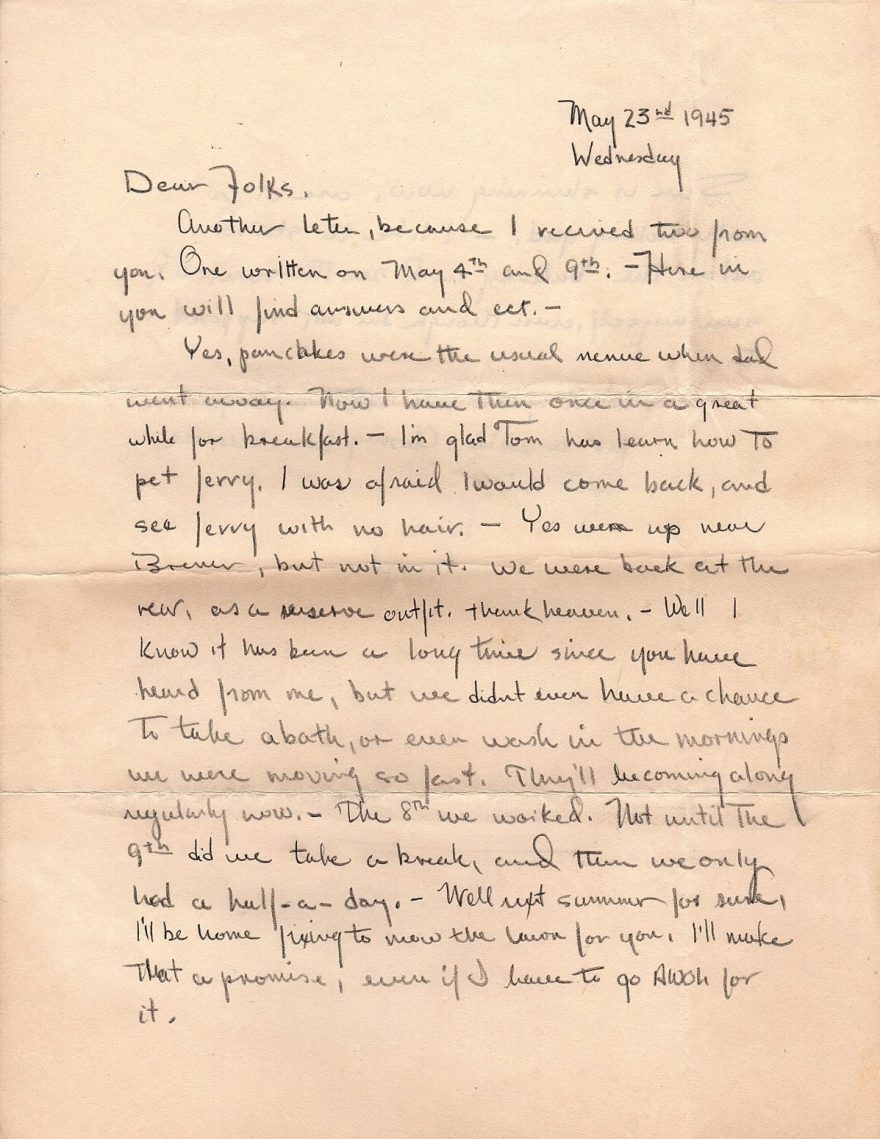 May 23rd 1945
Wednesday
Dear Folks.
Another leter, because I recived two from
you. One written on May 4th and 9th. - Here in
you will find answers and ect. -
Yes, pancakes were the usual menue when dad
went away. Now I have them once in a great
while for breakfast. - I'm glad Tom has learn how to
pet Jerry. I was afraid I would come back, and
see Jerry with no hair. - Yes were up near
but not in it. We were back at the
rear, as a reserve outfit. thank heaven. - Well I
know it has been a long time since you have
heard from me, but we didnt even have a chance
to take a bath, or even wash in the mornings
we were moving so fast. They'll be coming along
regularly now. - The 8th we worked. Not until the
9th did we take a break, and then we only
had a half-a-day. - Well next summer for sure,
I'll be home fixing to mow the lawn for you. I'll make
that a promise, even if I have to go AWOL for
it.